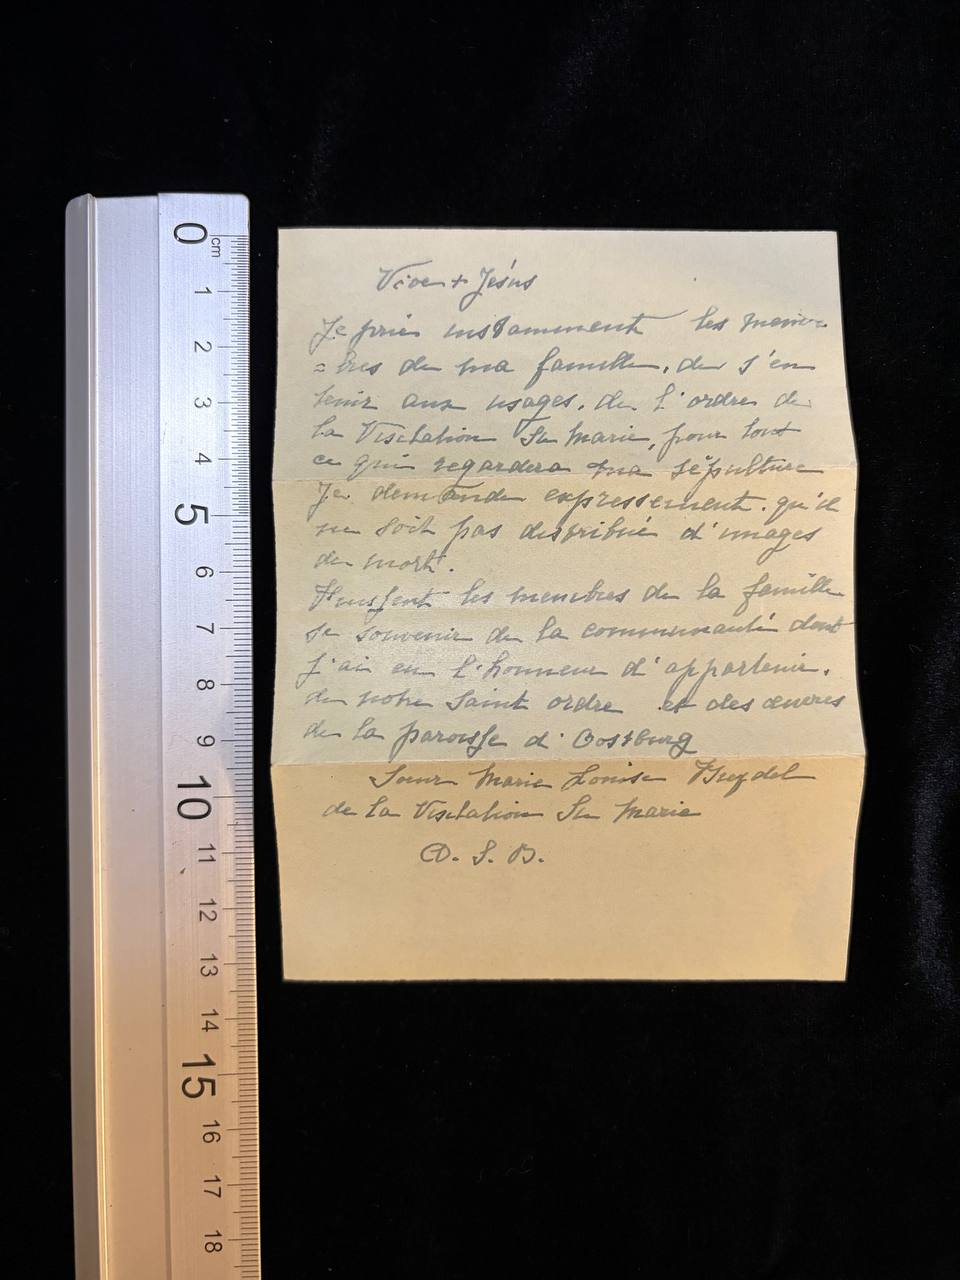 0
cm
1
2
3
4
5
6
7
8
9
10
11
12
13
14
15
16
17
18
Vive + Jésus
Je prie instamment les mem-
=bres de ma famille, de s'en
tenir aux usages, de l'ordre de
la Visitation Ste Marie, pour tout
ce qui regardera ma sépulture
Je demande expressement. qu'il
ne soit pas distribué d'images
de mort.
les membres de la famille
se souvenir de la communauté dont
j'ai eu l'honneur d'appartenir.
de notre Saint ordre et des œuvres
de la paroisse d'Oostburg
Sœur Marie Louise
de la Visitation Ste Marie
D. S. B.